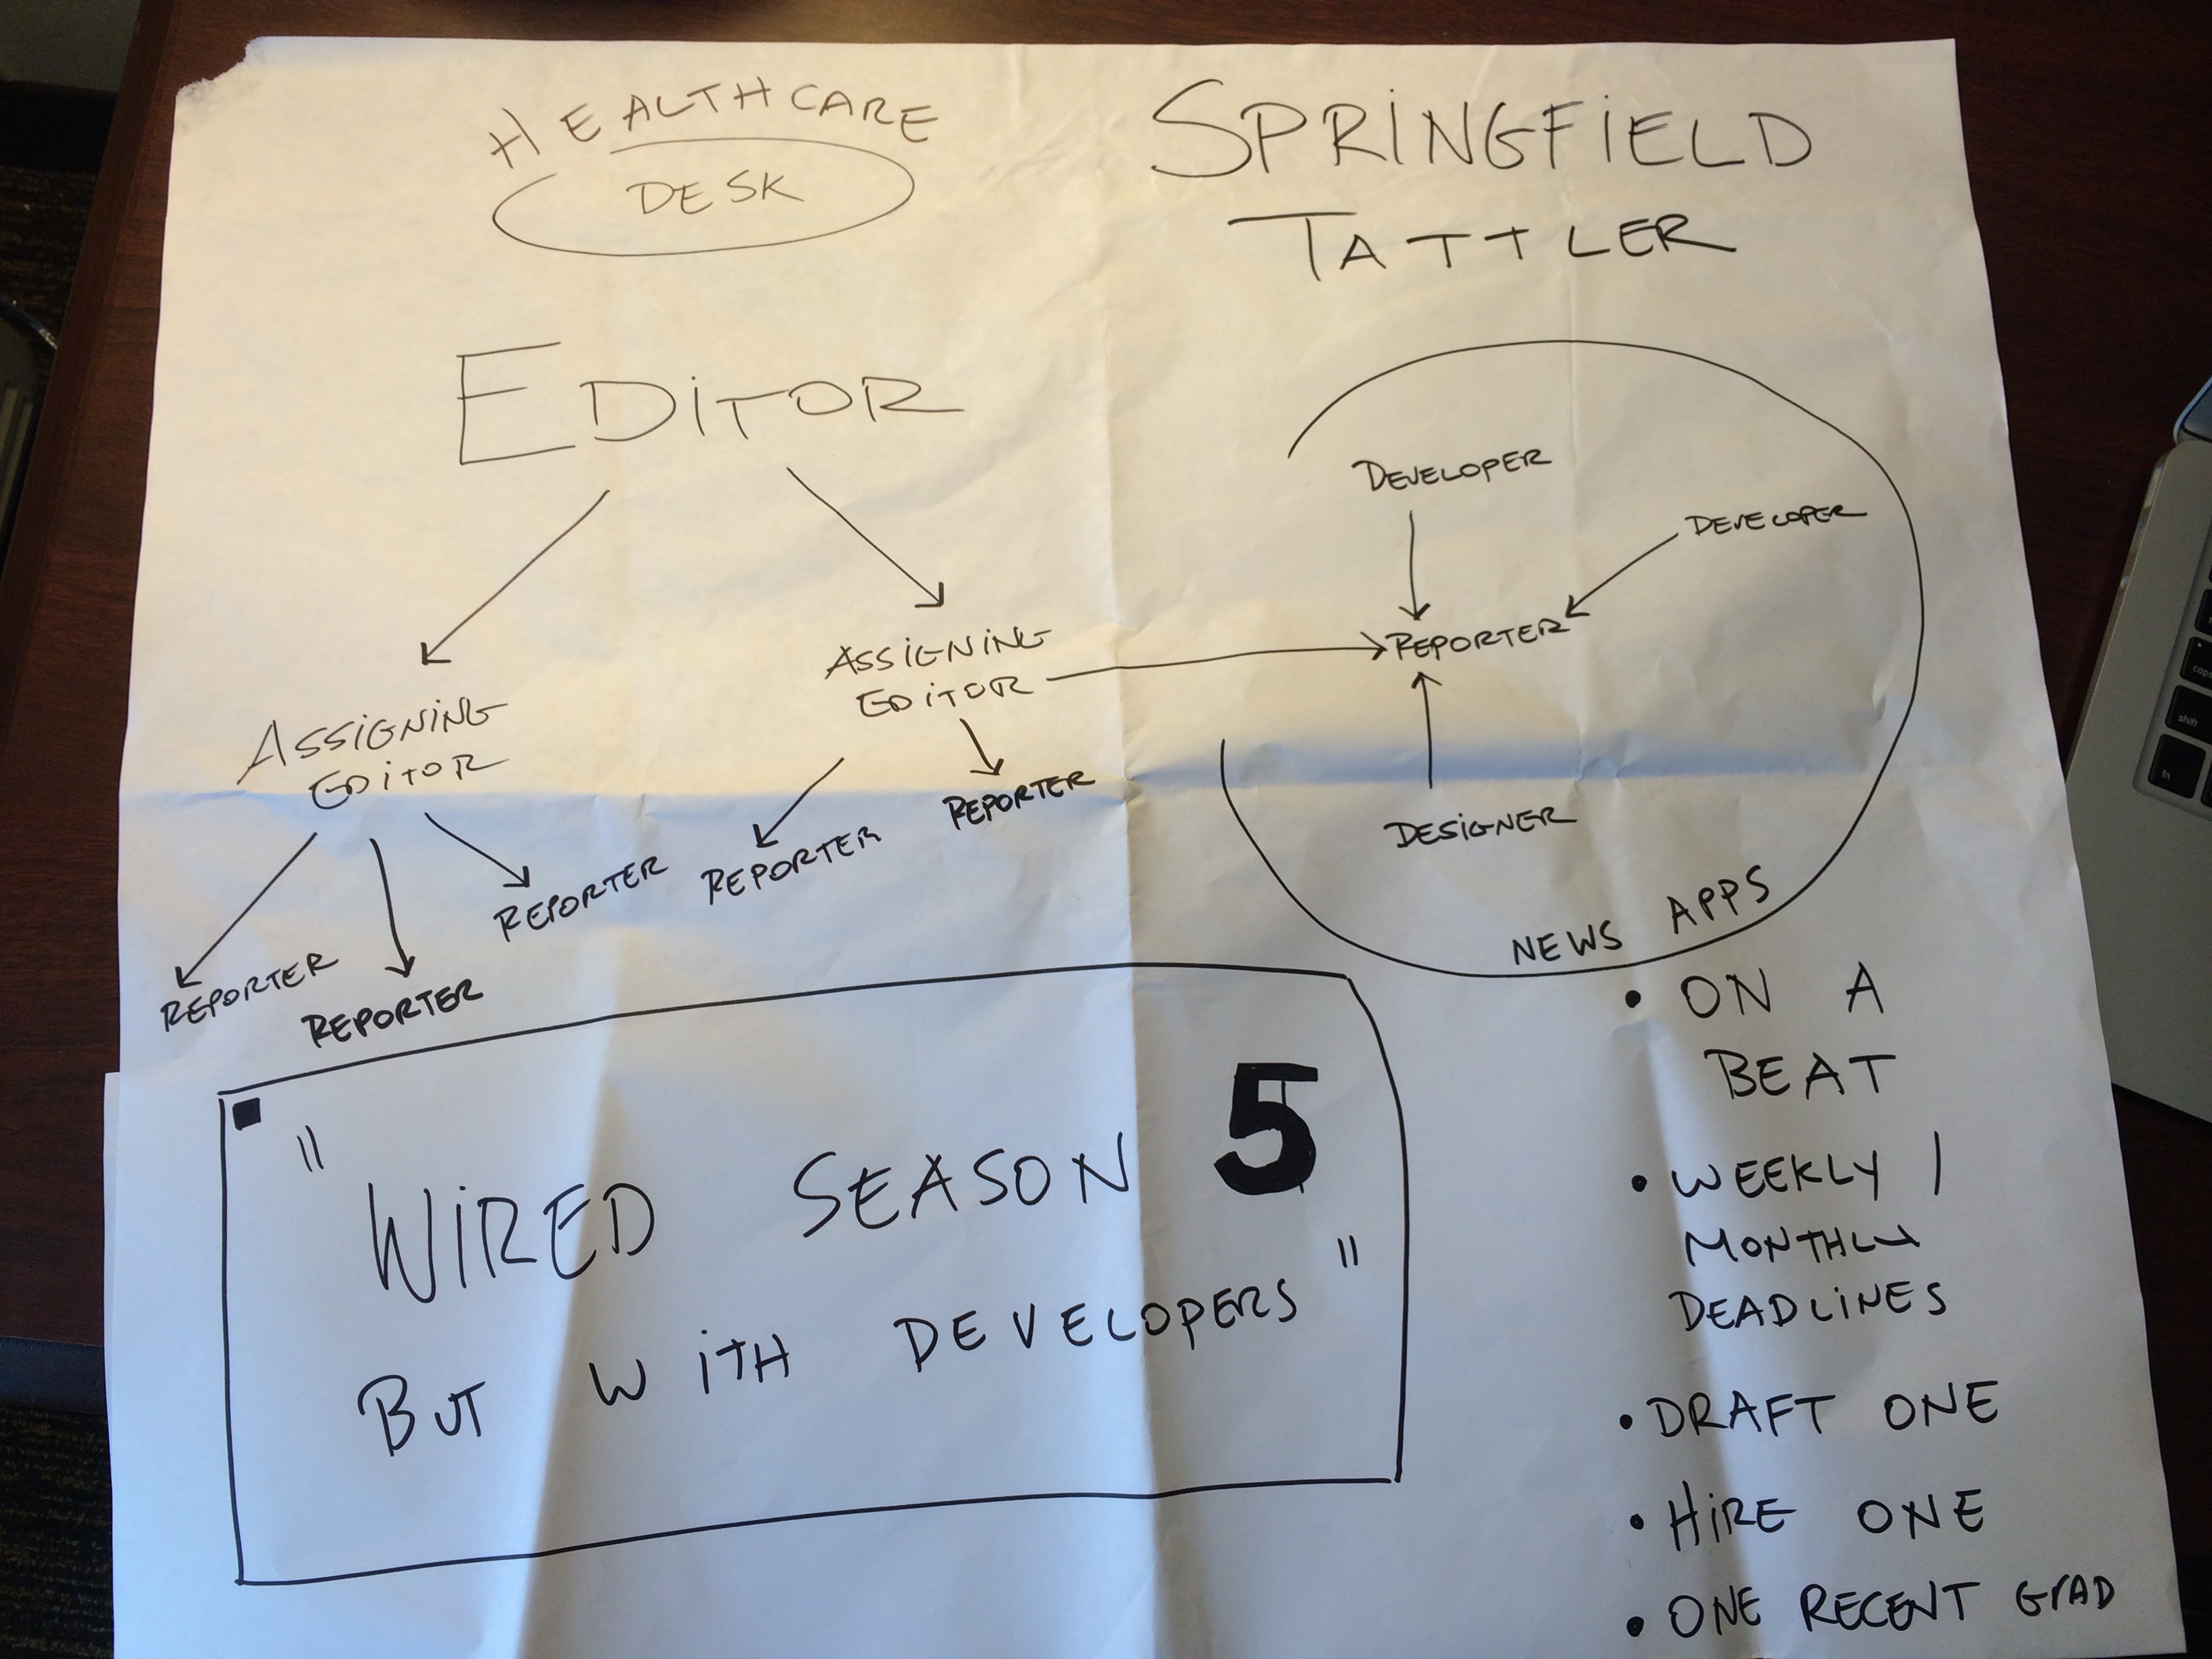 HEALTHCARE
DESK
SPRINGFIELD
TATTLER
EDITOR
ASSIGNING
EDITOR
REPORTER
REPORTER
REPORTER
ASSIGNING
EDITOR
REPORTER
REPORTER
DEVELOPER
DEVELOPER
REPORTER
DESIGNER
NEWS APPS
• ON A
BEAT
• WEEKLY /
MONTHLY
DEADLINES
• DRAFT ONE
• HIRE ONE
• ONE RECENT GRAD
" WIRED SEASON 5
BUT WITH DEVELOPERS "
caps
shift
fn